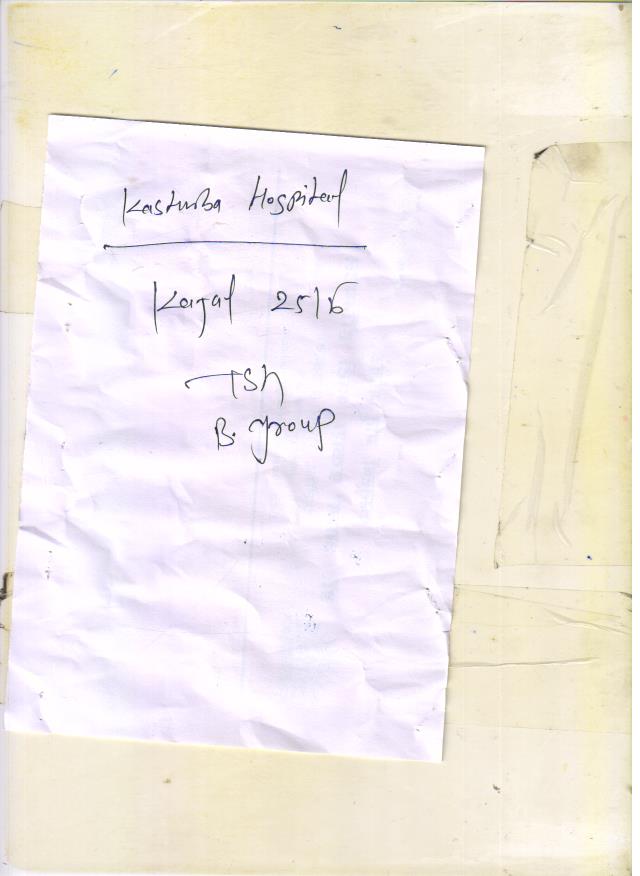 Kasturba Hospital
Kajal 25/F
TSH
B. group